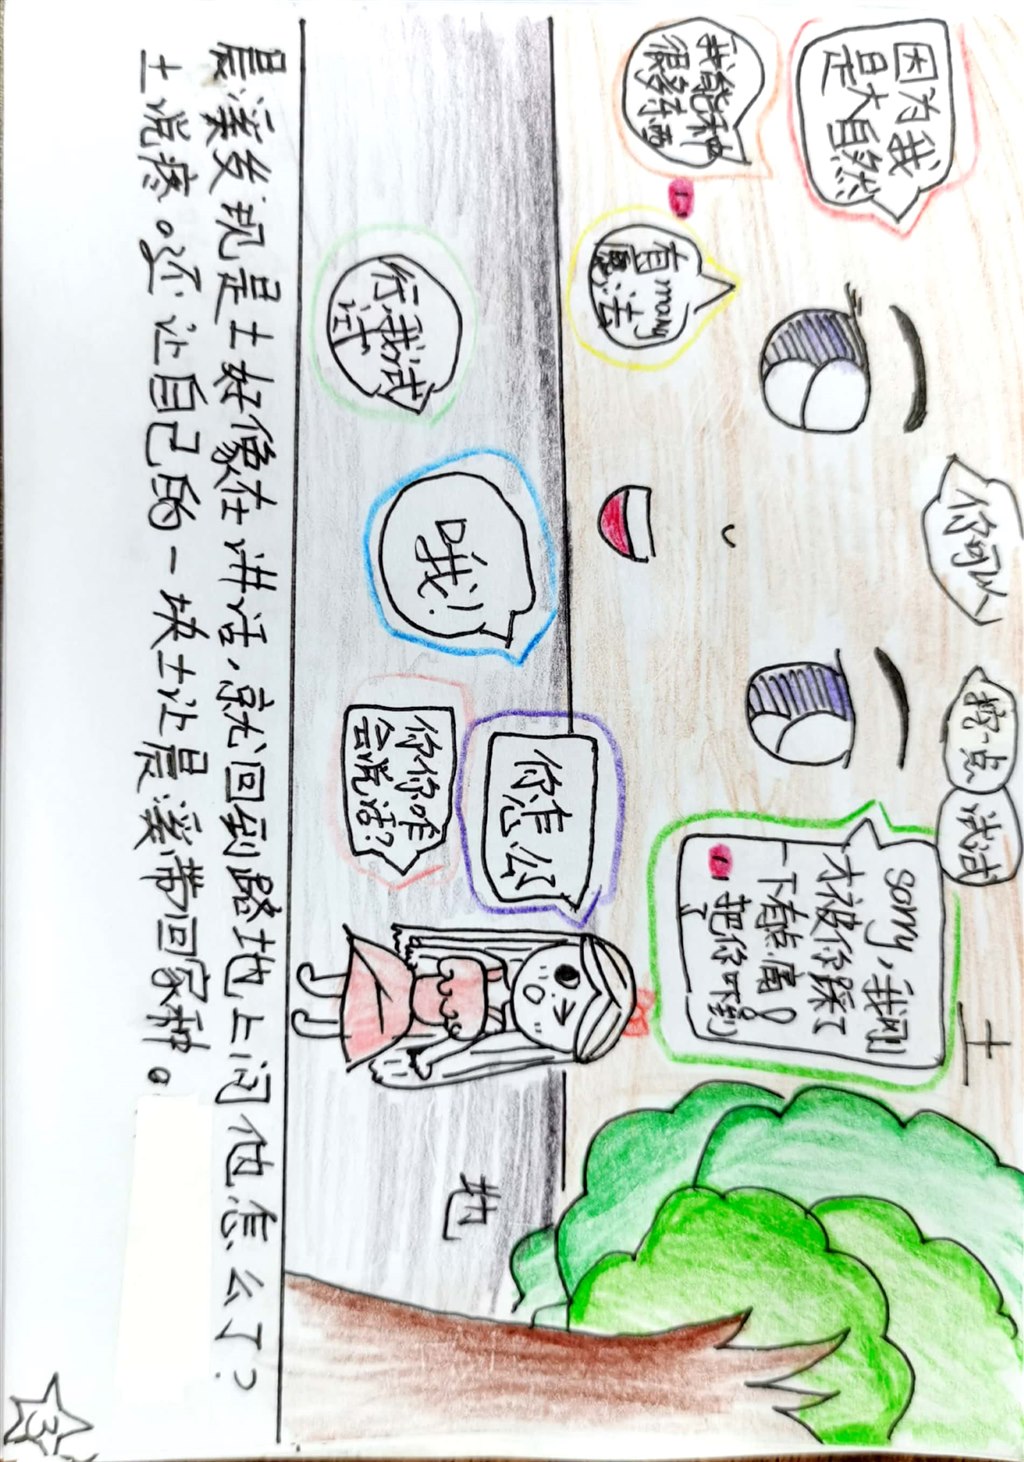 因为我
是大自然
我能种
很多东西
有many
魔法
你可以
挖一点
试试
土
sorry,我刚
才被你踩了
一下有点痛!
把你吓到
了
行,我试
试
哦!
你怎么
你你咋
会说话?
地
晨溪发现是土好像在讲话,就回到路地上问他怎么了?
土说疼。还让自己的一块土让晨溪带回家种。
3